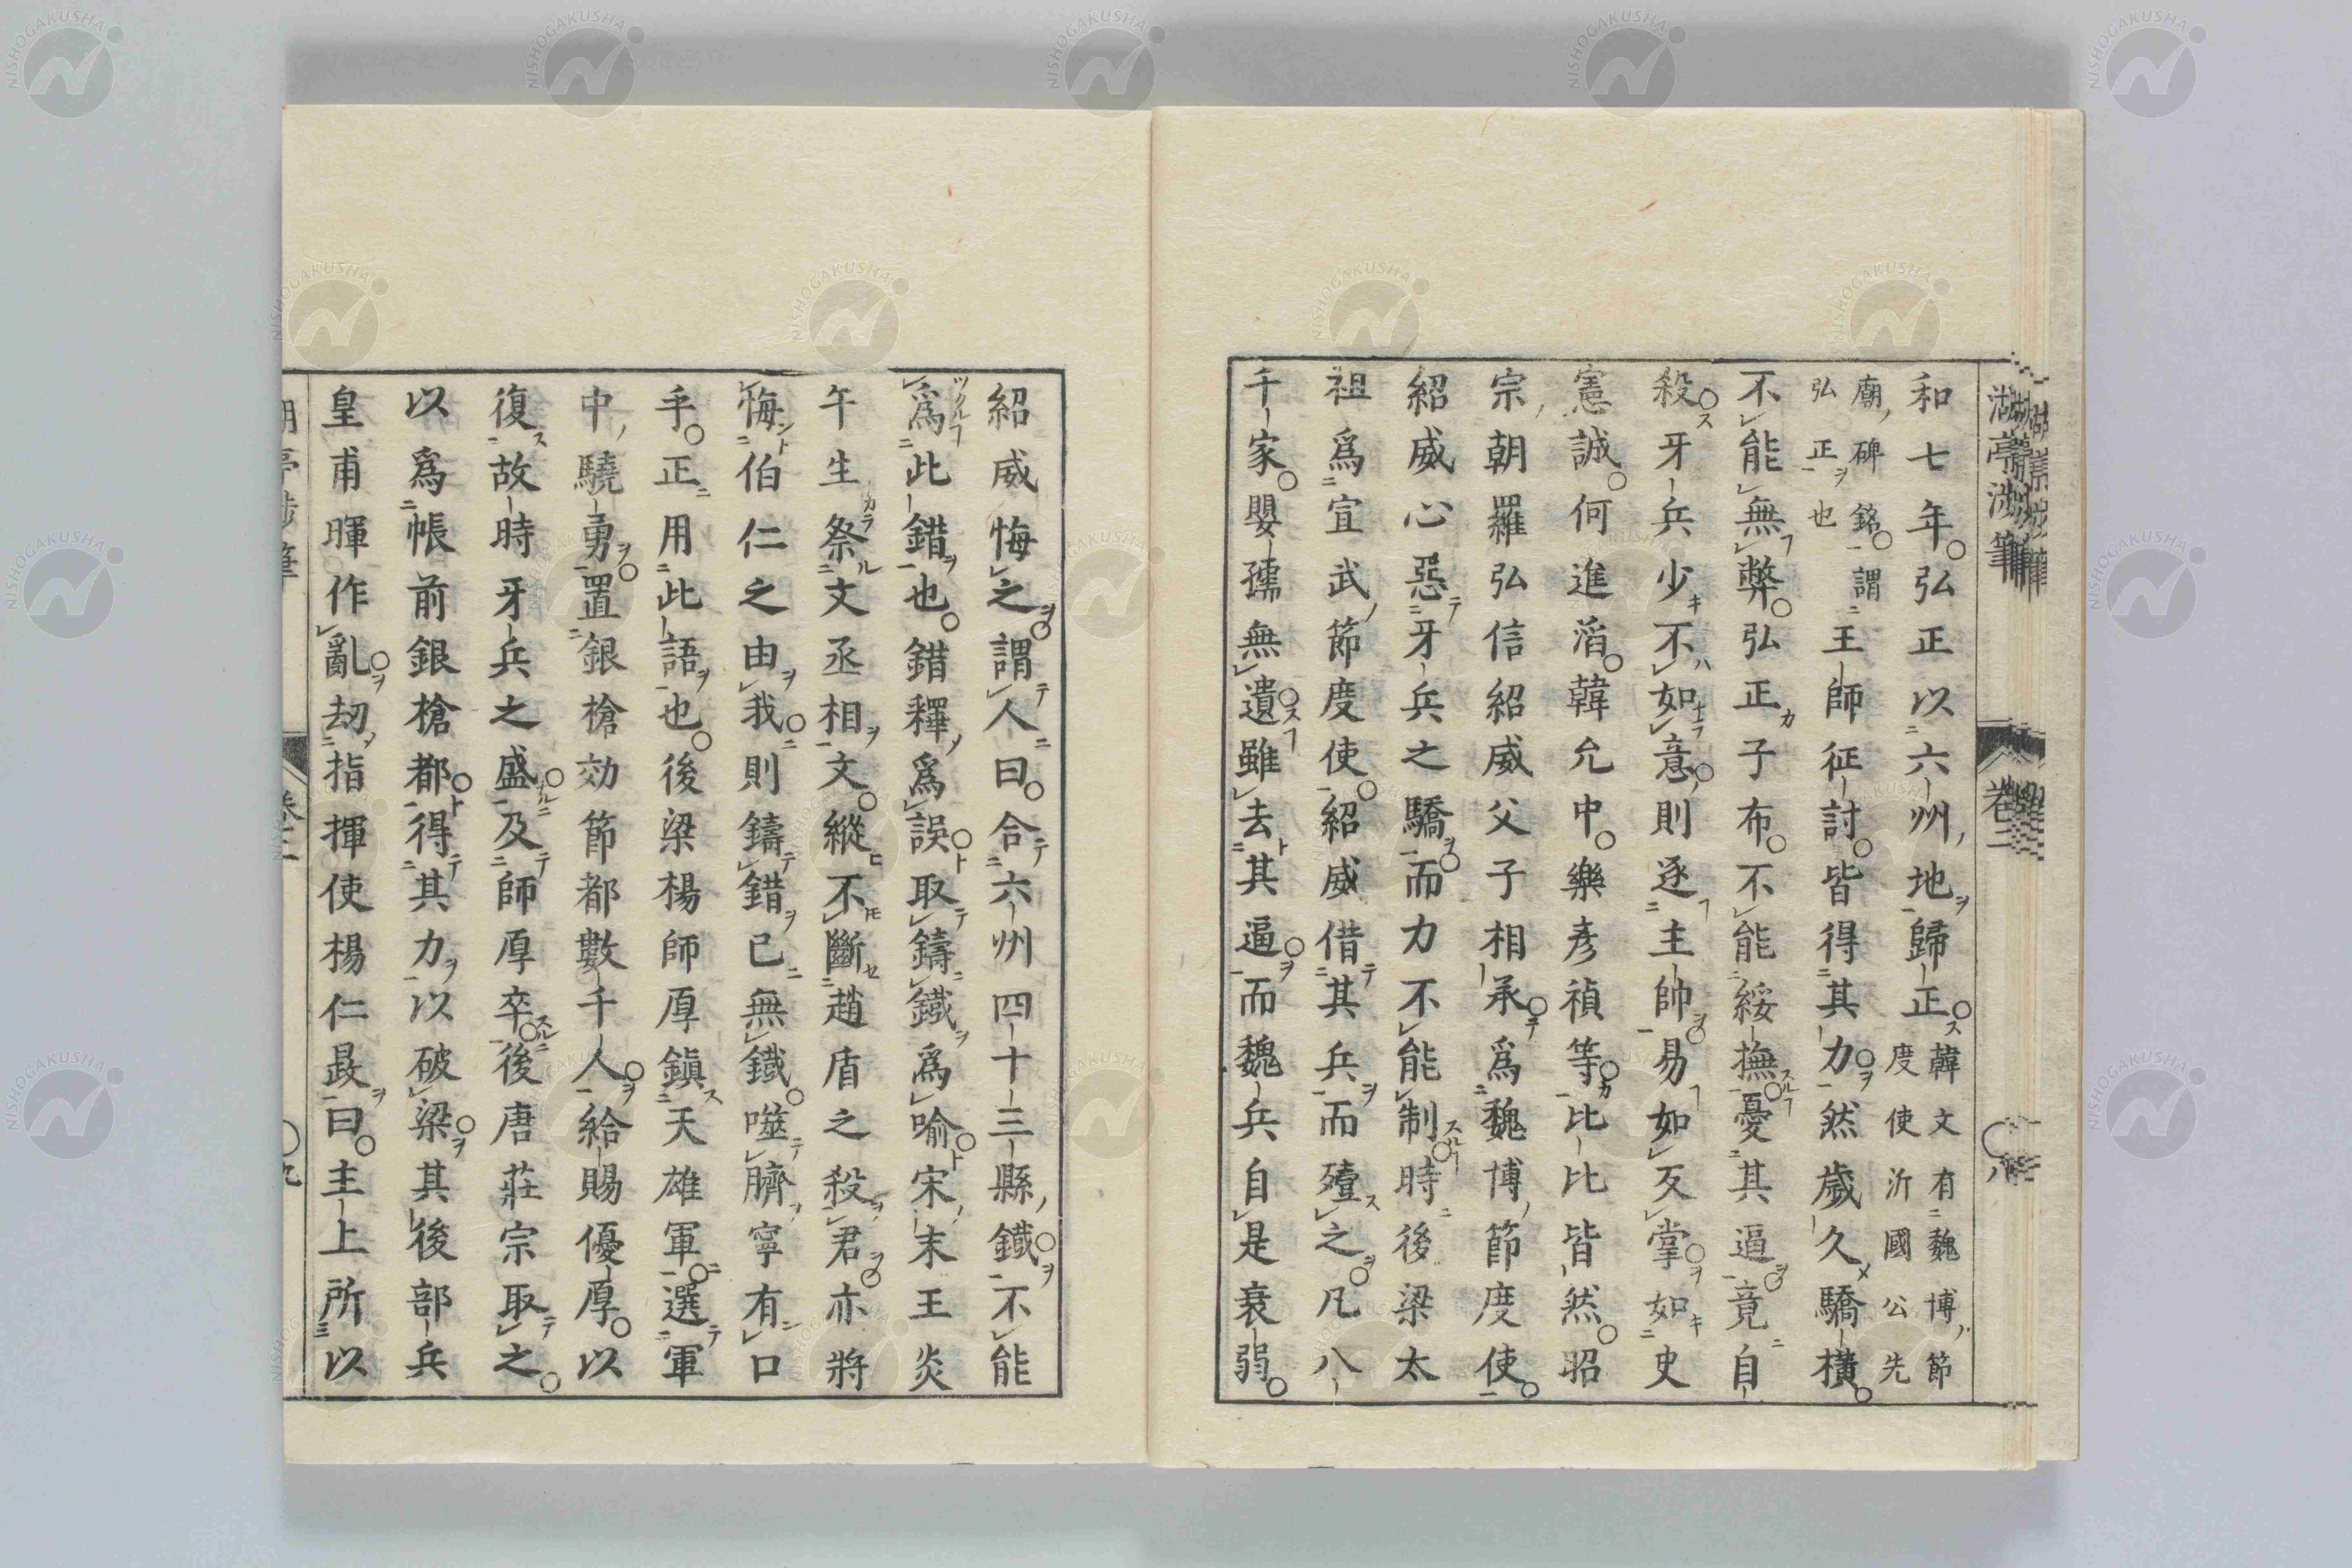 和七年弘正以六州地歸正韓文有魏博節度使沂國公先
廟碑銘謂弘正也王師征討皆得其力然歲久驕橫
不能無弊弘正子布不能綏撫憂其逼竟自
殺牙兵少不如意則逐主帥易如反掌如史
憲誠何進滔韓允中樂彦禎等比比皆然昭
宗朝羅弘信紹威父子相承爲魏博節度使
紹威心惡牙兵之驕而力不能制時後梁太
祖爲宣武節度使紹威借其兵而殪之凡八
千家嬰孺無遺雖去其逼而魏兵自是衰弱
湖亭涉筆
卷二
八
紹威悔之謂人曰合六州四十三縣鐵不能
爲此錯也錯釋爲誤取鑄鐵爲喻宋末王炎
午生祭文丞相文縱不斷趙盾之殺君亦將
悔伯仁之由我則鑄錯已無鐵噬臍寧有口
乎正用此語也後梁楊師厚鎭天雄軍選軍
中驍勇置銀槍効節都數千人給賜優厚以
復故時牙兵之盛及師厚卒後唐莊宗取之
以爲帳前銀槍都得其力以破梁其後部兵
皇甫暉作亂劫指揮使楊仁晸曰主上所以
NISHOGAKUSHA